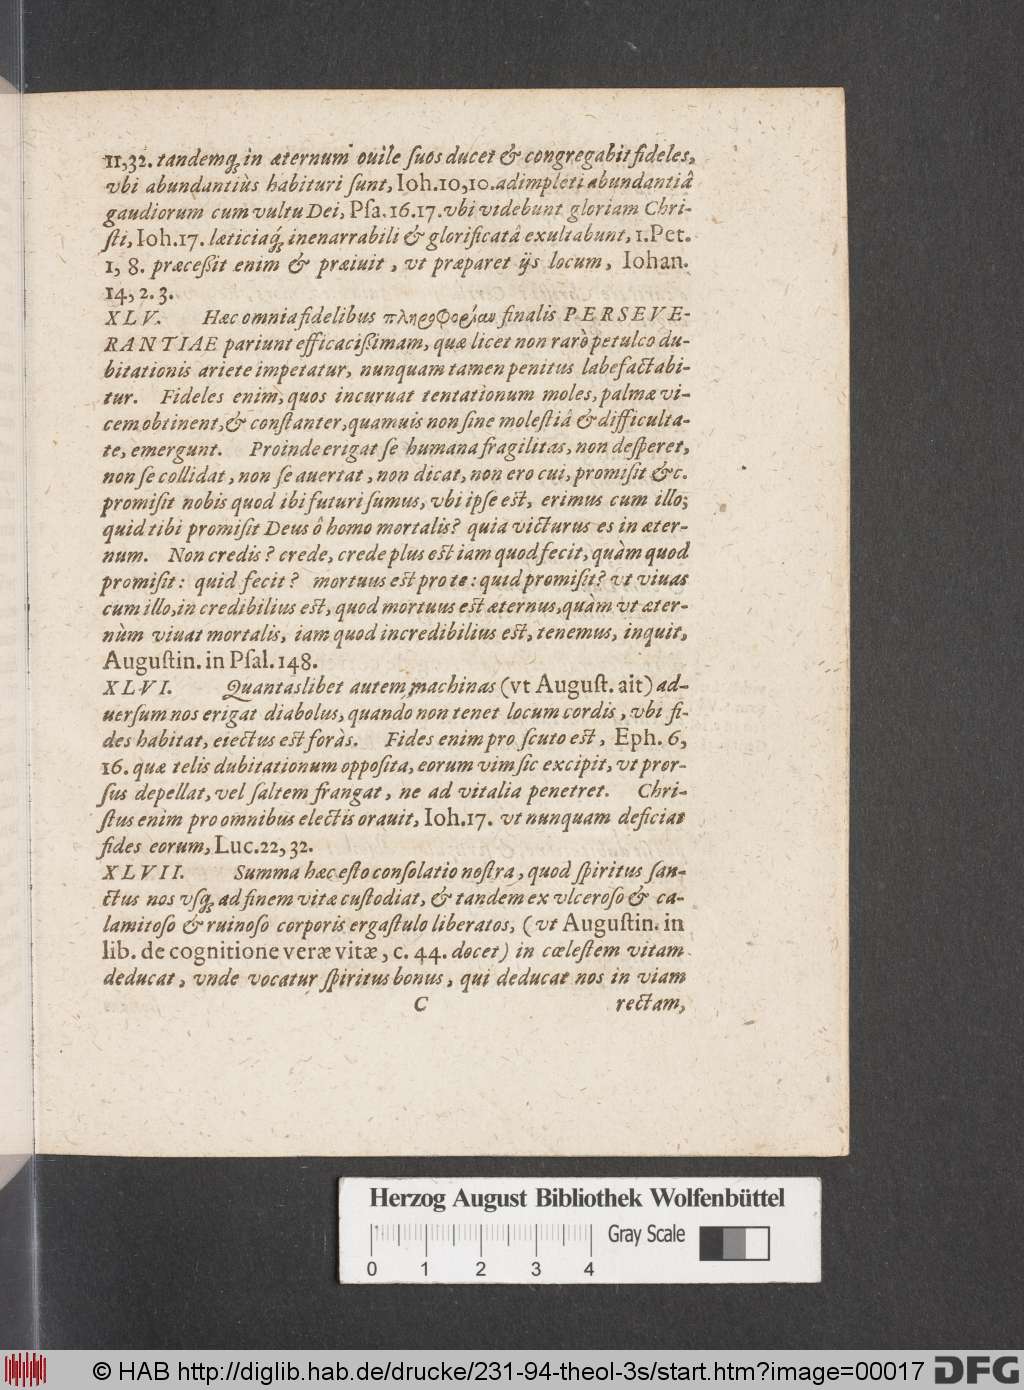 11,32. tandemq́; in æternum ouile ſuos ducet & congregabit fideles,
vbi abundantiùs habituri ſunt, Ioh.10,10. adimpleti abundantiâ
gaudiorum cum vultu Dei, Pſa.16.17. vbi videbunt gloriam Chri-
ſti, Ioh.17. læticiaq́; inenarrabili & glorificatâ exultabunt, 1.Pet.
1, 8. præceßit enim & præiuit, vt præparet ijs locum, Iohan.
14, 2. 3.
XLV. Hæc omnia fidelibus πληροφορίαν finalis PERSEVE-
RANTIAE pariunt efficacißimam, quæ licet non rarò petulco du-
bitationis ariete impetatur, nunquam tamen penitus labefactabi-
tur. Fideles enim, quos incuruat tentationum moles, palmæ vi-
cem obtinent, & conſtanter, quamuis non ſine moleſtiâ & difficulta-
te, emergunt. Proinde erigat ſe humana fragilitas, non deſperet,
non ſe collidat, non ſe auertat, non dicat, non ero cui, promiſit &c.
promiſit nobis quod ibi futuri ſumus, vbi ipſe est, erimus cum illo;
quid tibi promiſit Deus ô homo mortalis? quia victurus es in æter-
num. Non credis? crede, crede plus est iam quod fecit, quàm quod
promiſit: quid fecit? mortuus est pro te: quid promiſit? vt viuas
cum illo, in credibilius est, quod mortuus est æternus, quàm vt æter-
nùm viuat mortalis, iam quod incredibilius est, tenemus, inquit,
Auguſtin. in Pſal.148.
XLVI. Quantaslibet autem machinas (vt Auguſt. ait) ad-
uerſum nos erigat diabolus, quando non tenet locum cordis, vbi fi-
des habitat, eiectus est foràs. Fides enim pro ſcuto est, Eph. 6,
16. quæ telis dubitationum oppoſita, eorum vim ſic excipit, vt pror-
ſus depellat, vel ſaltem frangat, ne ad vitalia penetret. Chri-
ſtus enim pro omnibus electis orauit, Ioh.17. vt nunquam deficiat
fides eorum, Luc.22, 32.
XLVII. Summa hæc eſto conſolatio noſtra, quod ſpiritus ſan-
ctus nos vſq́; ad finem vitæ cuſtodiat, & tandem ex vlceroſo & ca-
lamitoſo & ruinoſo corporis ergaſtulo liberatos, (vt Auguſtin. in
lib. de cognitione veræ vitæ, c. 44. docet) in cœleſtem vitam
deducat, vnde vocatur ſpiritus bonus, qui deducat nos in viam
C rectam,
Herzog August Bibliothek Wolfenbüttel
Gray Scale
0 1 2 3 4
© HAB http://diglib.hab.de/drucke/231-94-theol-3s/start.htm?image=00017
DFG